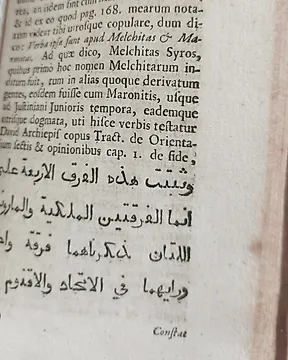 & id ex eo quod pag. 168. mearum nota-
tum videat tibi utrosque copulare, dum di-
Verba ipsa sunt apud Melchitas & Ma-
Ad quæ dico, Melchitas Syros,
quibus primo hoc nomen Melchitarum in-
ditum fuit, tum in alias quoque derivatum
gentes, eosdem fuisse cum Maronitis, usque
ad Justiniani Junioris tempora, eademque
utrisque dogmata, uti hisce verbis testatur
David Archiepiscopus Tract. de Orienta-
lium sectis & opinionibus cap. 1. de fide,
وتبتت هذه الفرق الاربعة على
انما الفرقتين الملكية والمارون
اللتان ذكرناهما فرقة واح
ورايهما في الاتحاد والاقنوم
Constat